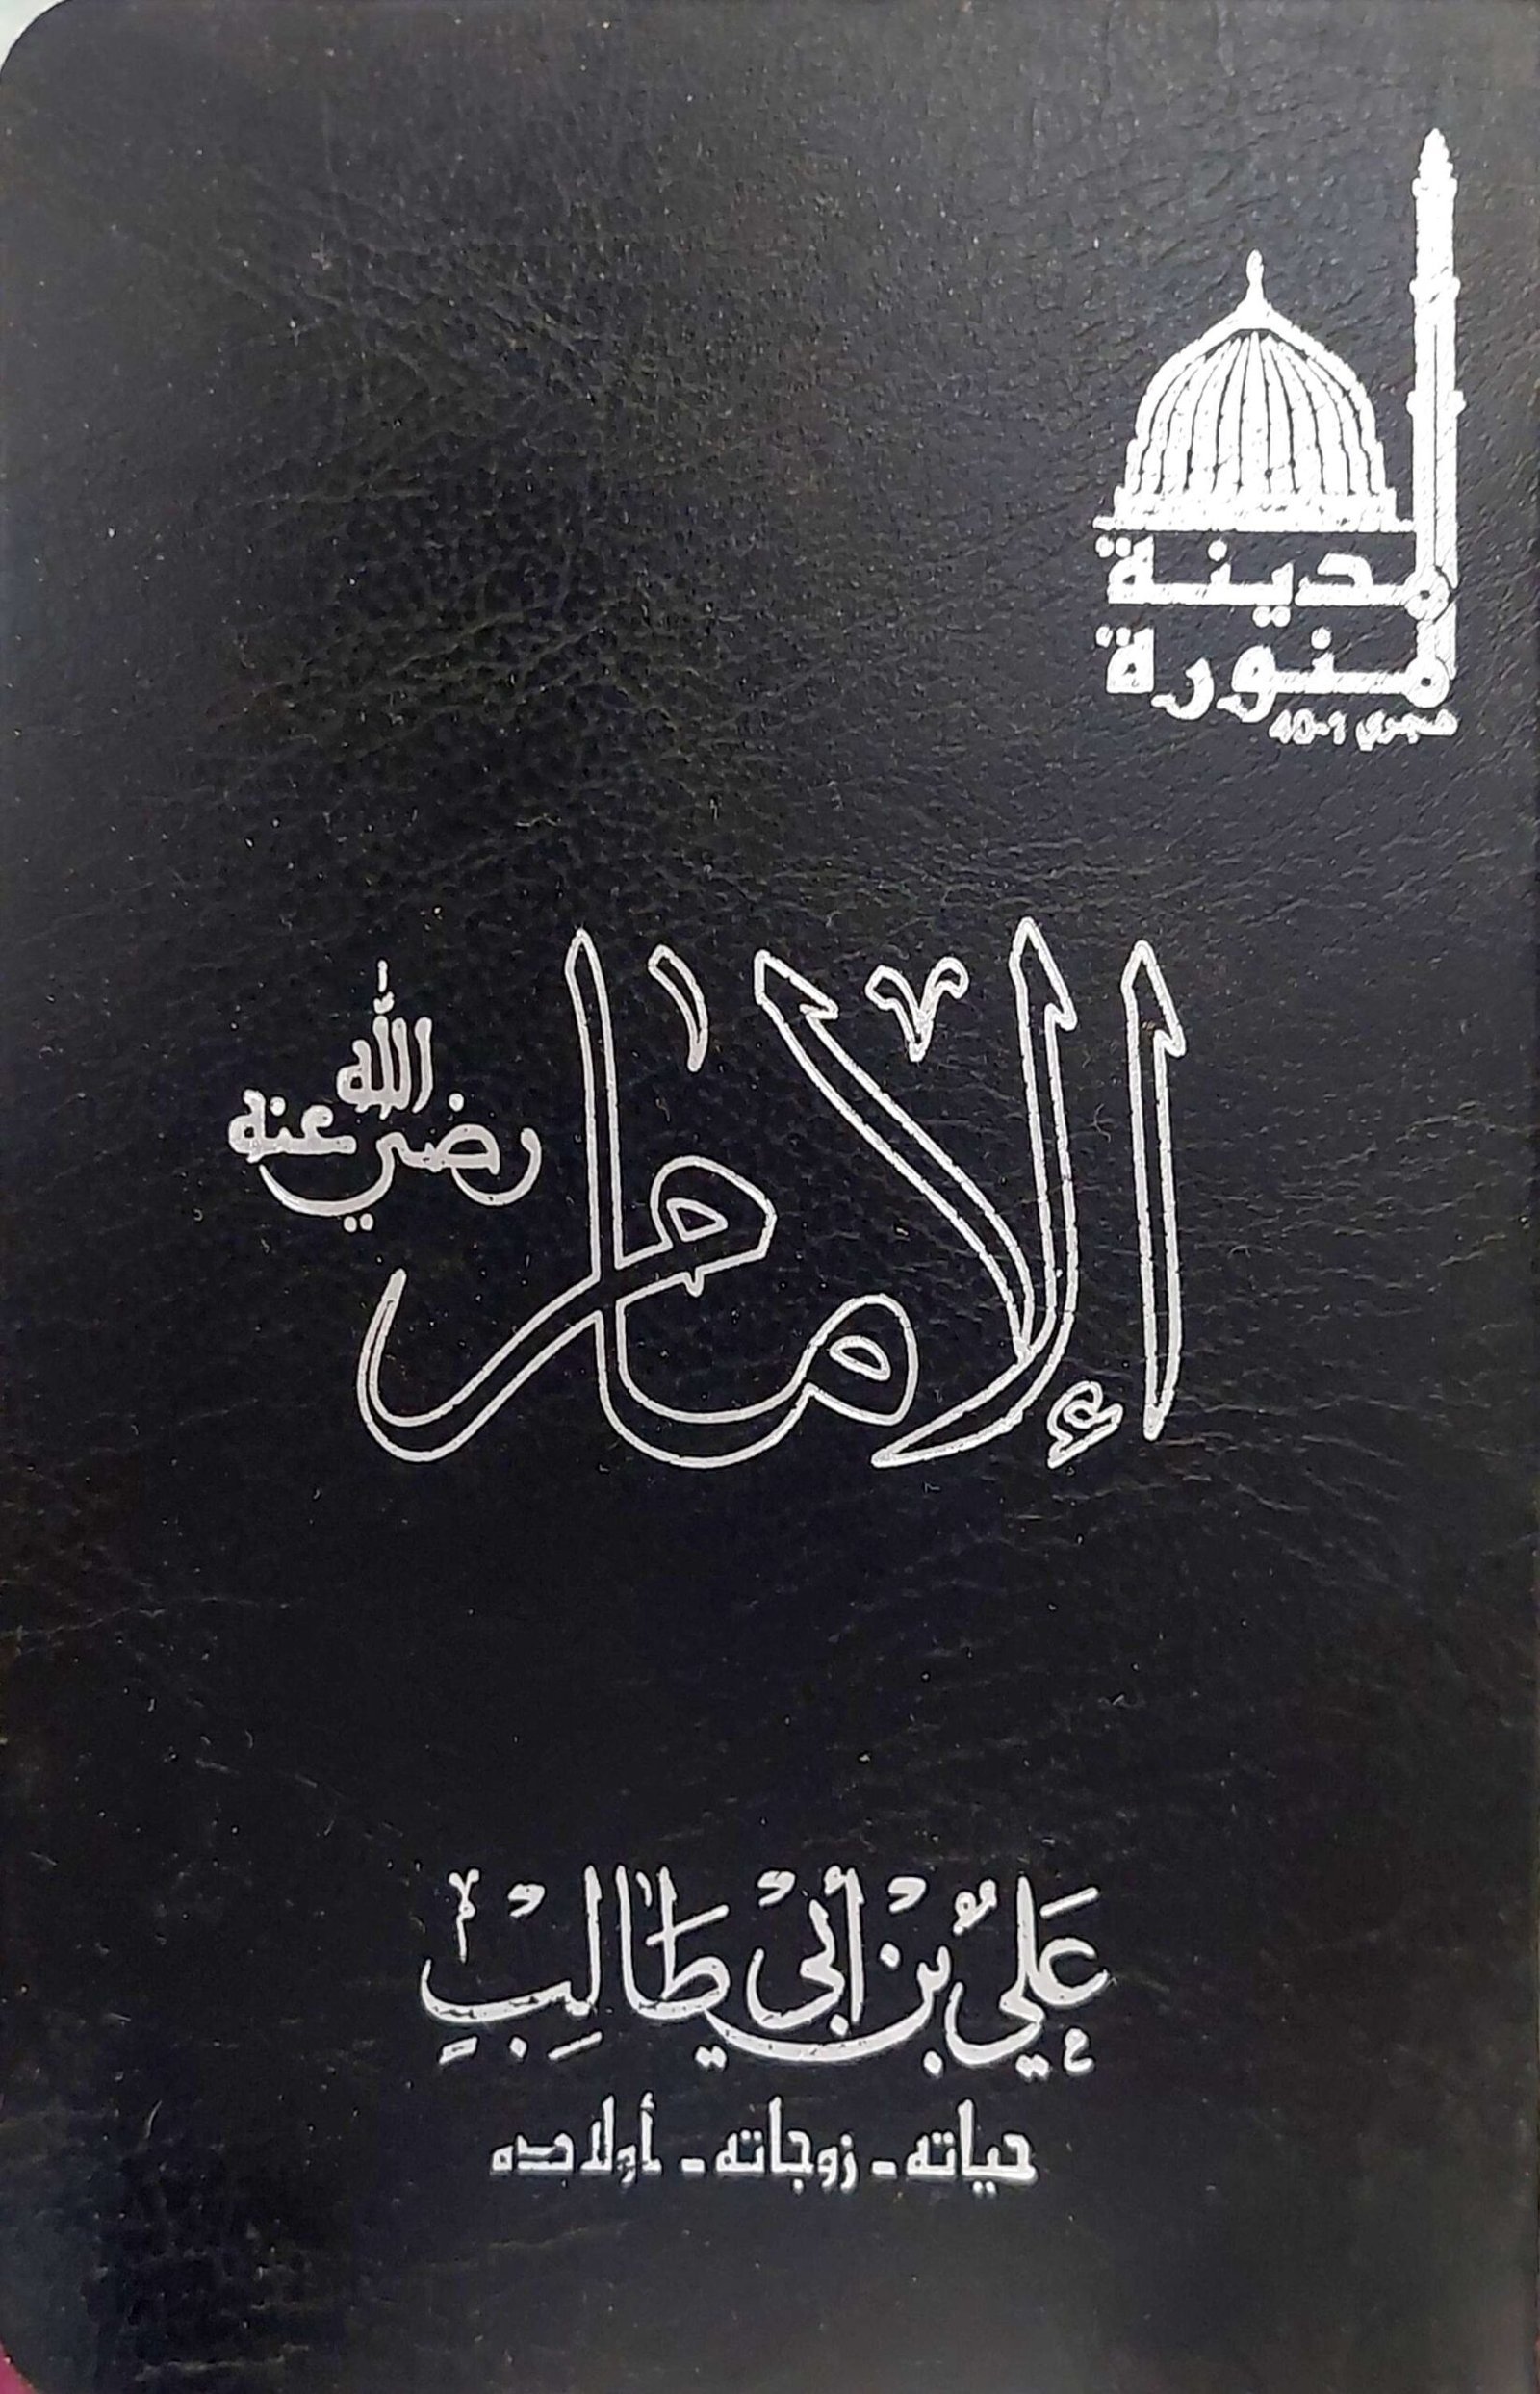 المدينة
المنورة
هجري 1-40
الإمام
رضي الله عنه
عَلِيُّ بْنُ أَبِي طَالِبْ
حياته - زوجاته - أولاده